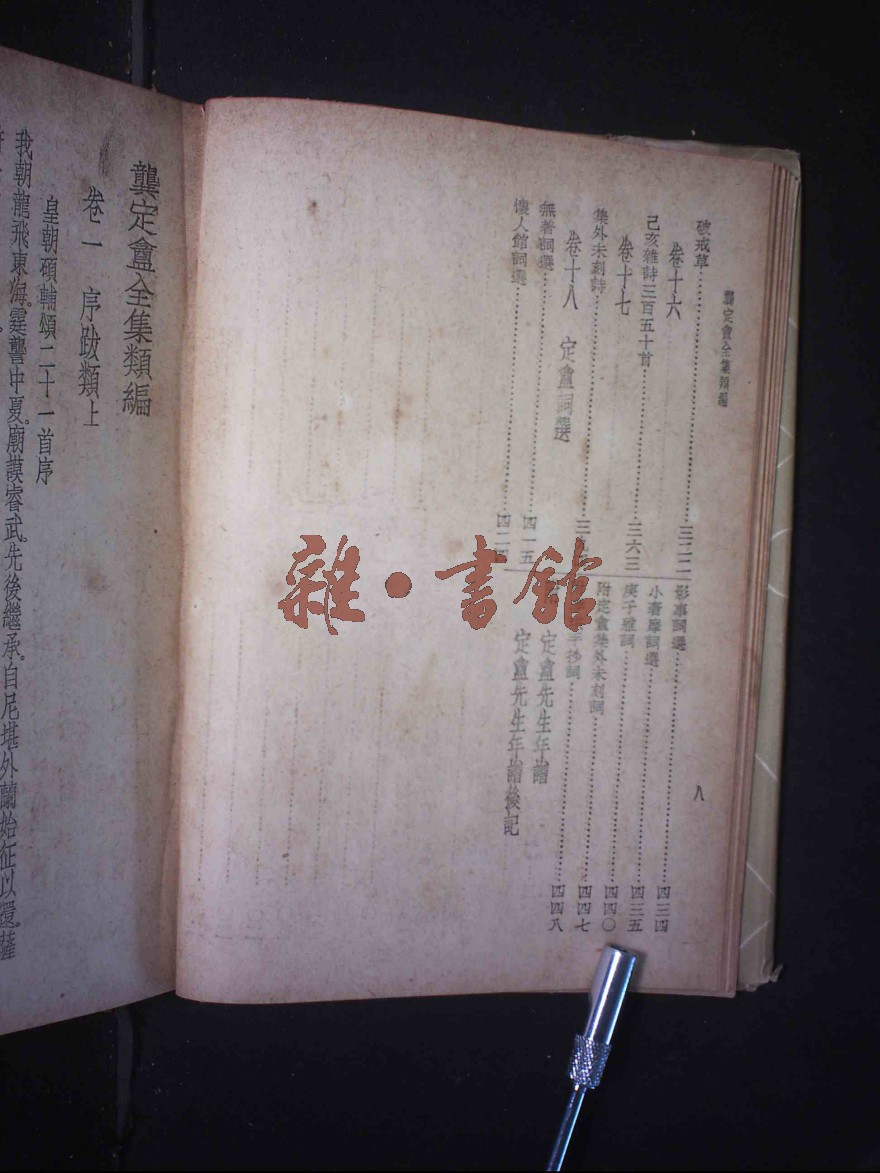 龔定盦全集類編
八
破戒草……三二二
卷十六
己亥雜詩三百五十首……三六三
卷十七
集外未刻詩……三
卷十八 定盦詞選
無著詞選……四一五
懷人館詞選……四二
影事詞選……四三四
小奢摩詞選……四三五
庚子雅詞……四四〇
附定盦集外未刻詞……四四七
手抄詞……四四八
定盦先生年譜
定盦先生年譜後記
龔定盦全集類編
卷一 序跋類上
皇朝碩輔頌二十一首序
我朝龍飛東海。霆讋中夏。廟謨睿武。先後繼承。自尼堪外蘭始征以還。薩
雜·書館